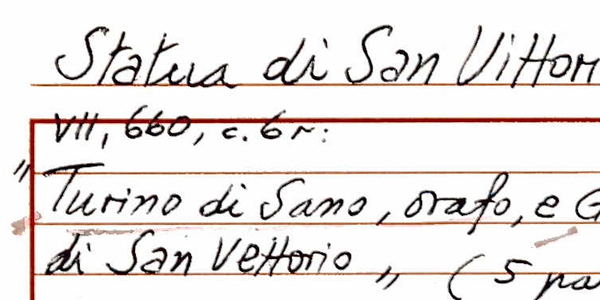 Statua di San Vittor
VII, 660, c. 6 r:
" Turino di Sano, orafo, e G
di San Vettorio " ( 5 pa